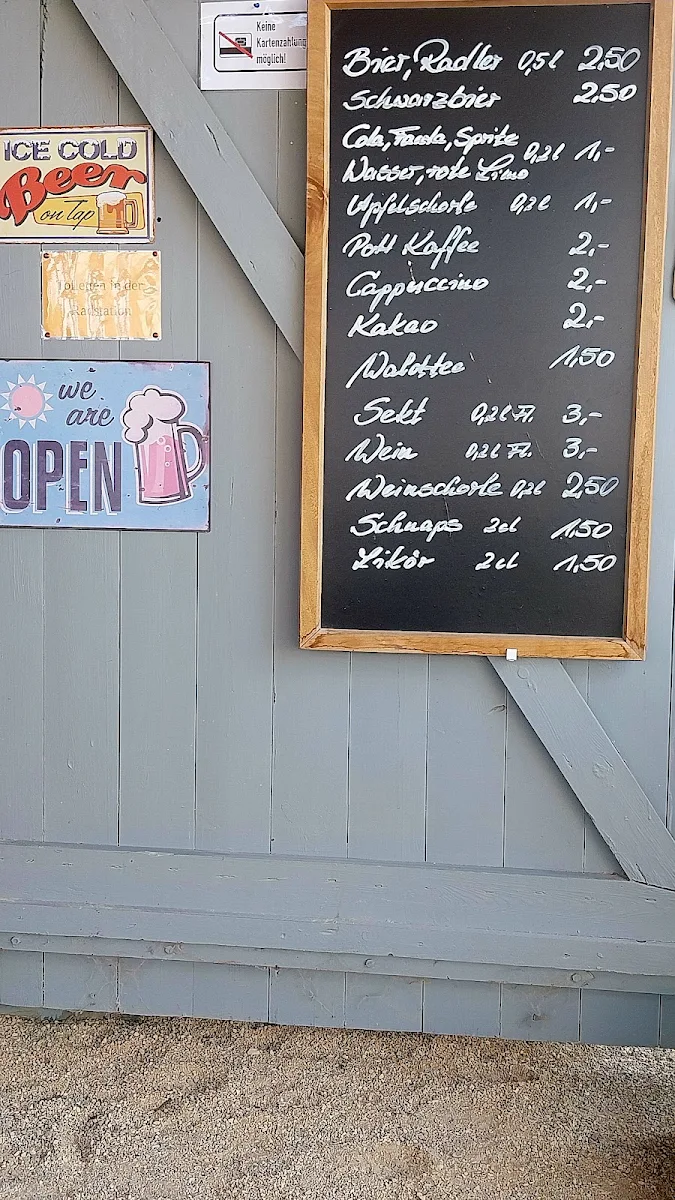 Keine
Kartenzahlung
möglich!
ICE COLD
Beer
on Tap
Toiletten in der
Radstation
we
are
OPEN
Bier, Radler 0,5l 2,50
Schwarzbier 2,50
Cola, Fanta, Sprite
Wasser, rote Limo 0,2l 1,-
Apfelschorle 0,2l 1,-
Pott Kaffee 2,-
Cappuccino 2,-
Kakao 2,-
Waldttee 1,50
Sekt 0,2l Fl. 3,-
Wein 0,2l Fl. 3,-
Weinschorle 0,2l 2,50
Schnaps 2cl 1,50
Likör 2cl 1,50